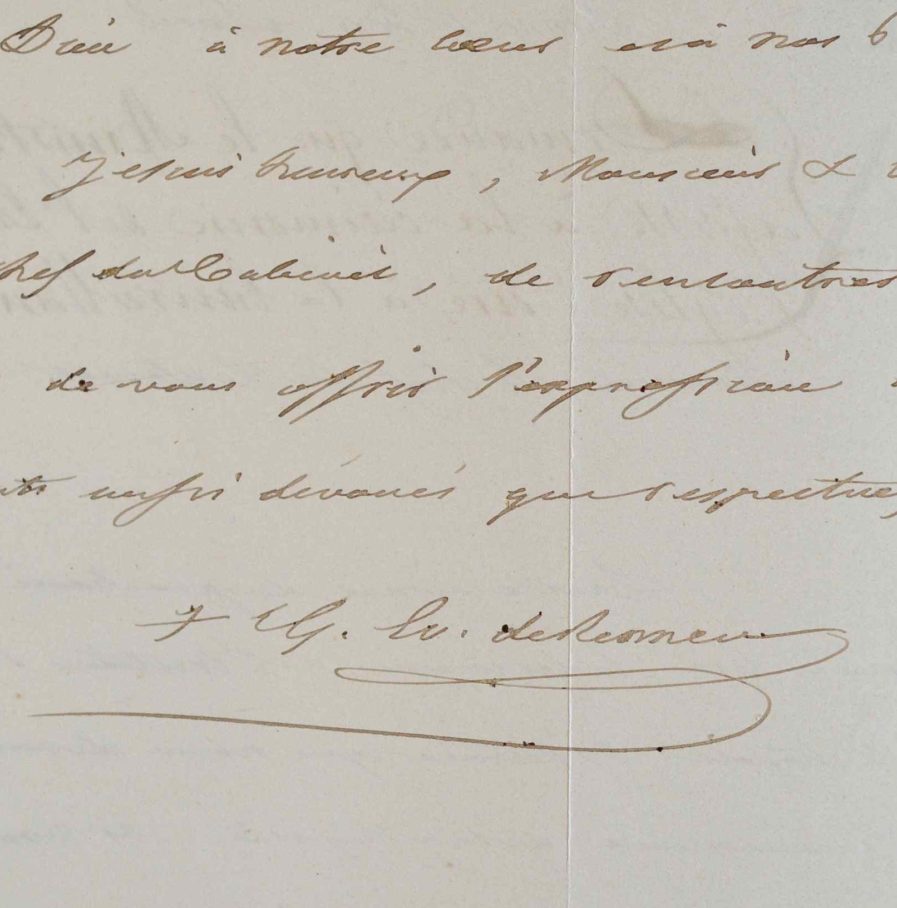 Dieu à notre cœur et à nos b
Je suis heureux, Monsieur &
hef du Cabinet, de rencontrer
de vous offrir l'expression
ts aussi dévoués que respectue
† G. Ev. de